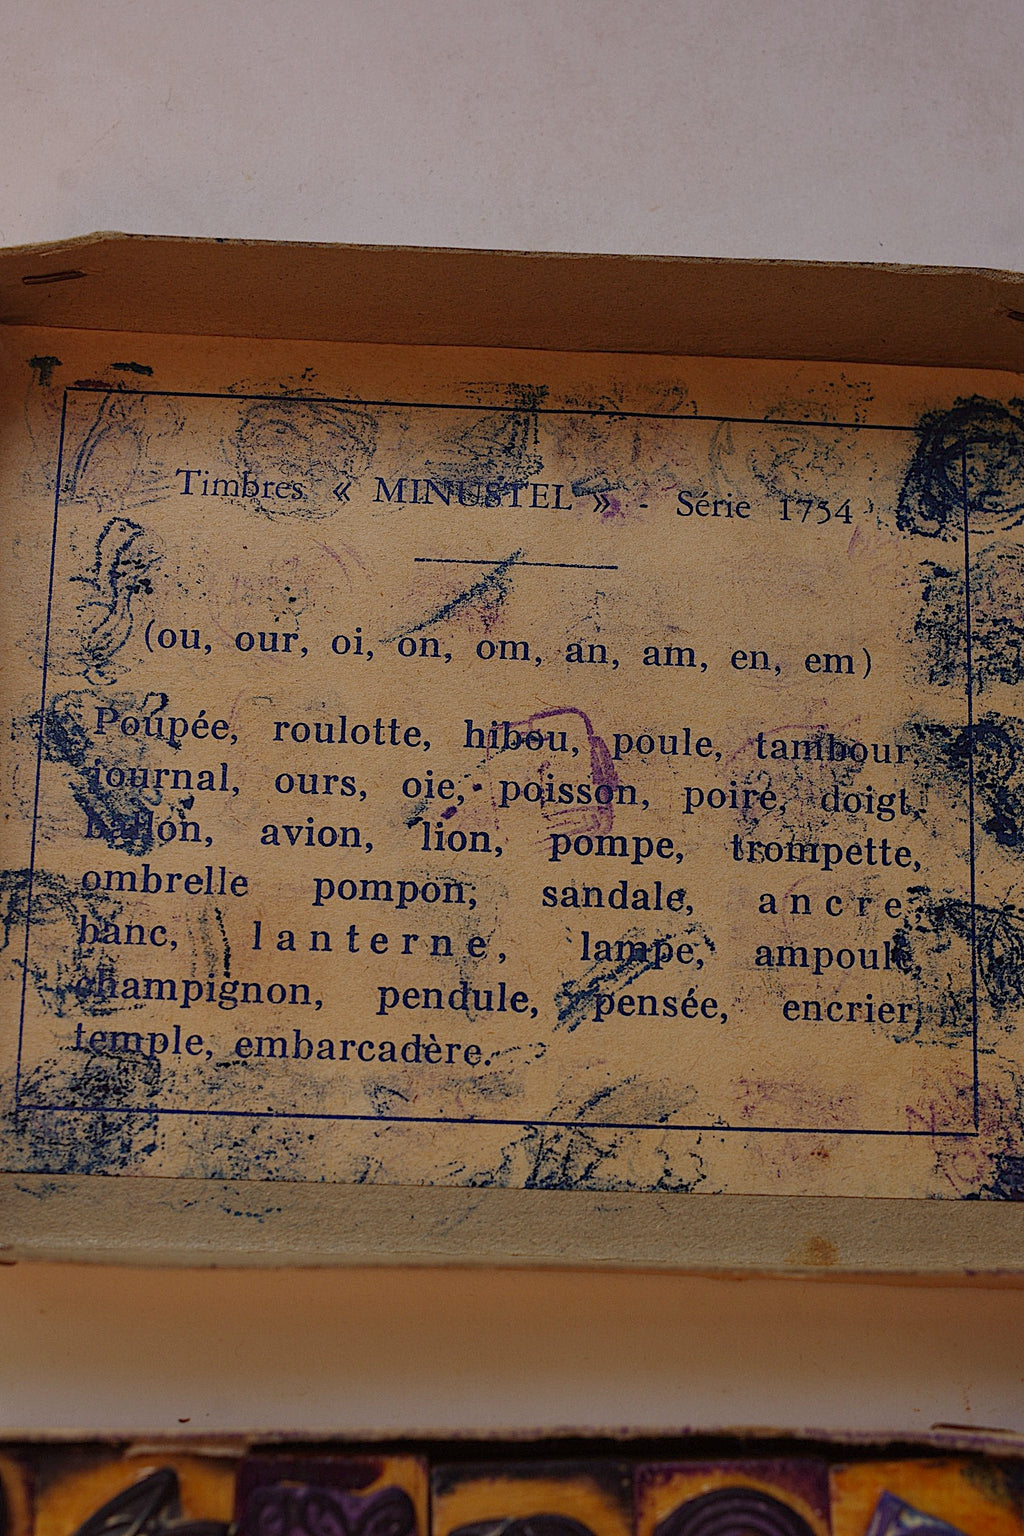 Timbres « MINUSTEL » - Série 1754
(ou, our, oi, on, om, an, am, en, em)
Poupée, roulotte, hibou, poule, tambour,
journal, ours, oie, poisson, poire, doigt,
ballon, avion, lion, pompe, trompette,
ombrelle pompon, sandale, ancre,
banc, lanterne, lampe, ampoule,
champignon, pendule, pensée, encrier,
temple, embarcadère.